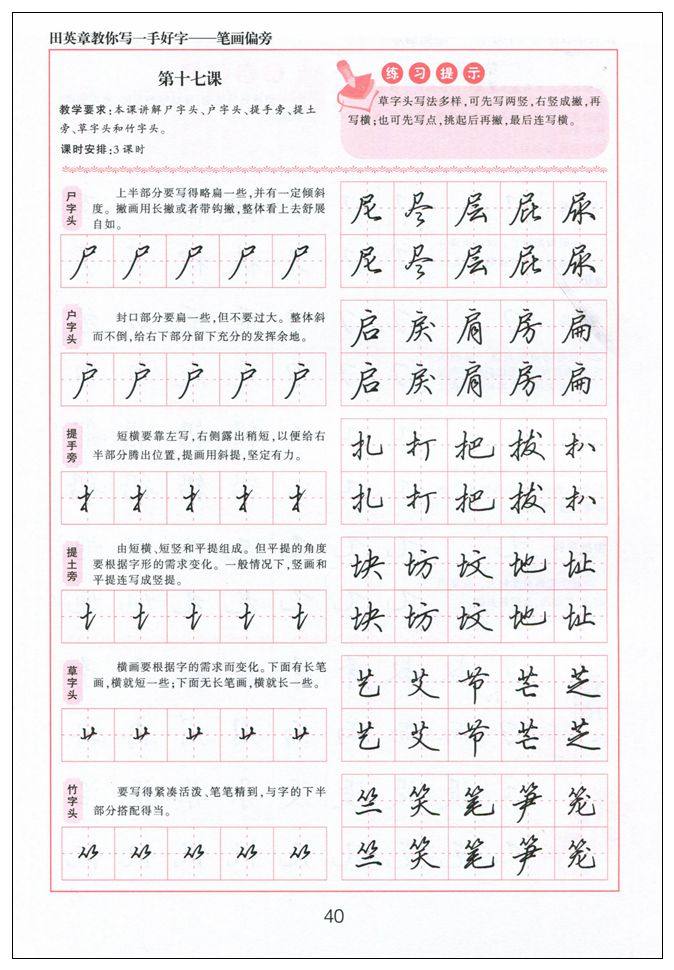 田英章教你写一手好字——笔画偏旁
第十七课
教学要求:本课讲解尸字头、户字头、提手旁、提土
旁、草字头和竹字头。
课时安排:3课时
练习提示
草字头写法多样,可先写两竖,右竖成撇,再
写横;也可先写点,挑起后再撇,最后连写横。
尸字头
上半部分要写得略扁一些,并有一定倾斜
度。撇画用长撇或者带钩撇,整体看上去舒展
自如。
尸尸尸尸尸
尼尽层屁尿
尼尽层屁尿
户字头
封口部分要扁一些,但不要过大。整体斜
而不倒,给右下部分留下充分的发挥余地。
户户户户户
启戾肩房扁
启戾肩房扁
提手旁
短横要靠左写,右侧露出稍短,以便给右
半部分腾出位置,提画用斜提,坚定有力。
扌扌扌扌扌
扎打把拔扒
扎打把拔扒
提土旁
由短横、短竖和平提组成。但平提的角度
要根据字形的需求变化。一般情况下,竖画和
平提连写成竖提。
土土土土土
块坊坟地址
块坊坟地址
草字头
横画要根据字的需求而变化。下面有长笔
画,横就短一些;下面无长笔画,横就长一些。
艹艹艹艹艹
艺艾节芒芝
艺艾节芒芝
竹字头
要写得紧凑活泼、笔笔精到,与字的下半
部分搭配得当。
⺮⺮⺮⺮⺮
竺笑笔笋笼
竺笑笔笋笼
40